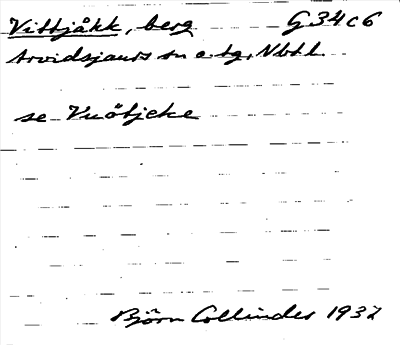 Vittjåkk, berg G34c6
Arvidsjaurs sn o. tg, Nbtl
se Vuåtjeke
Björn Collinder 1937